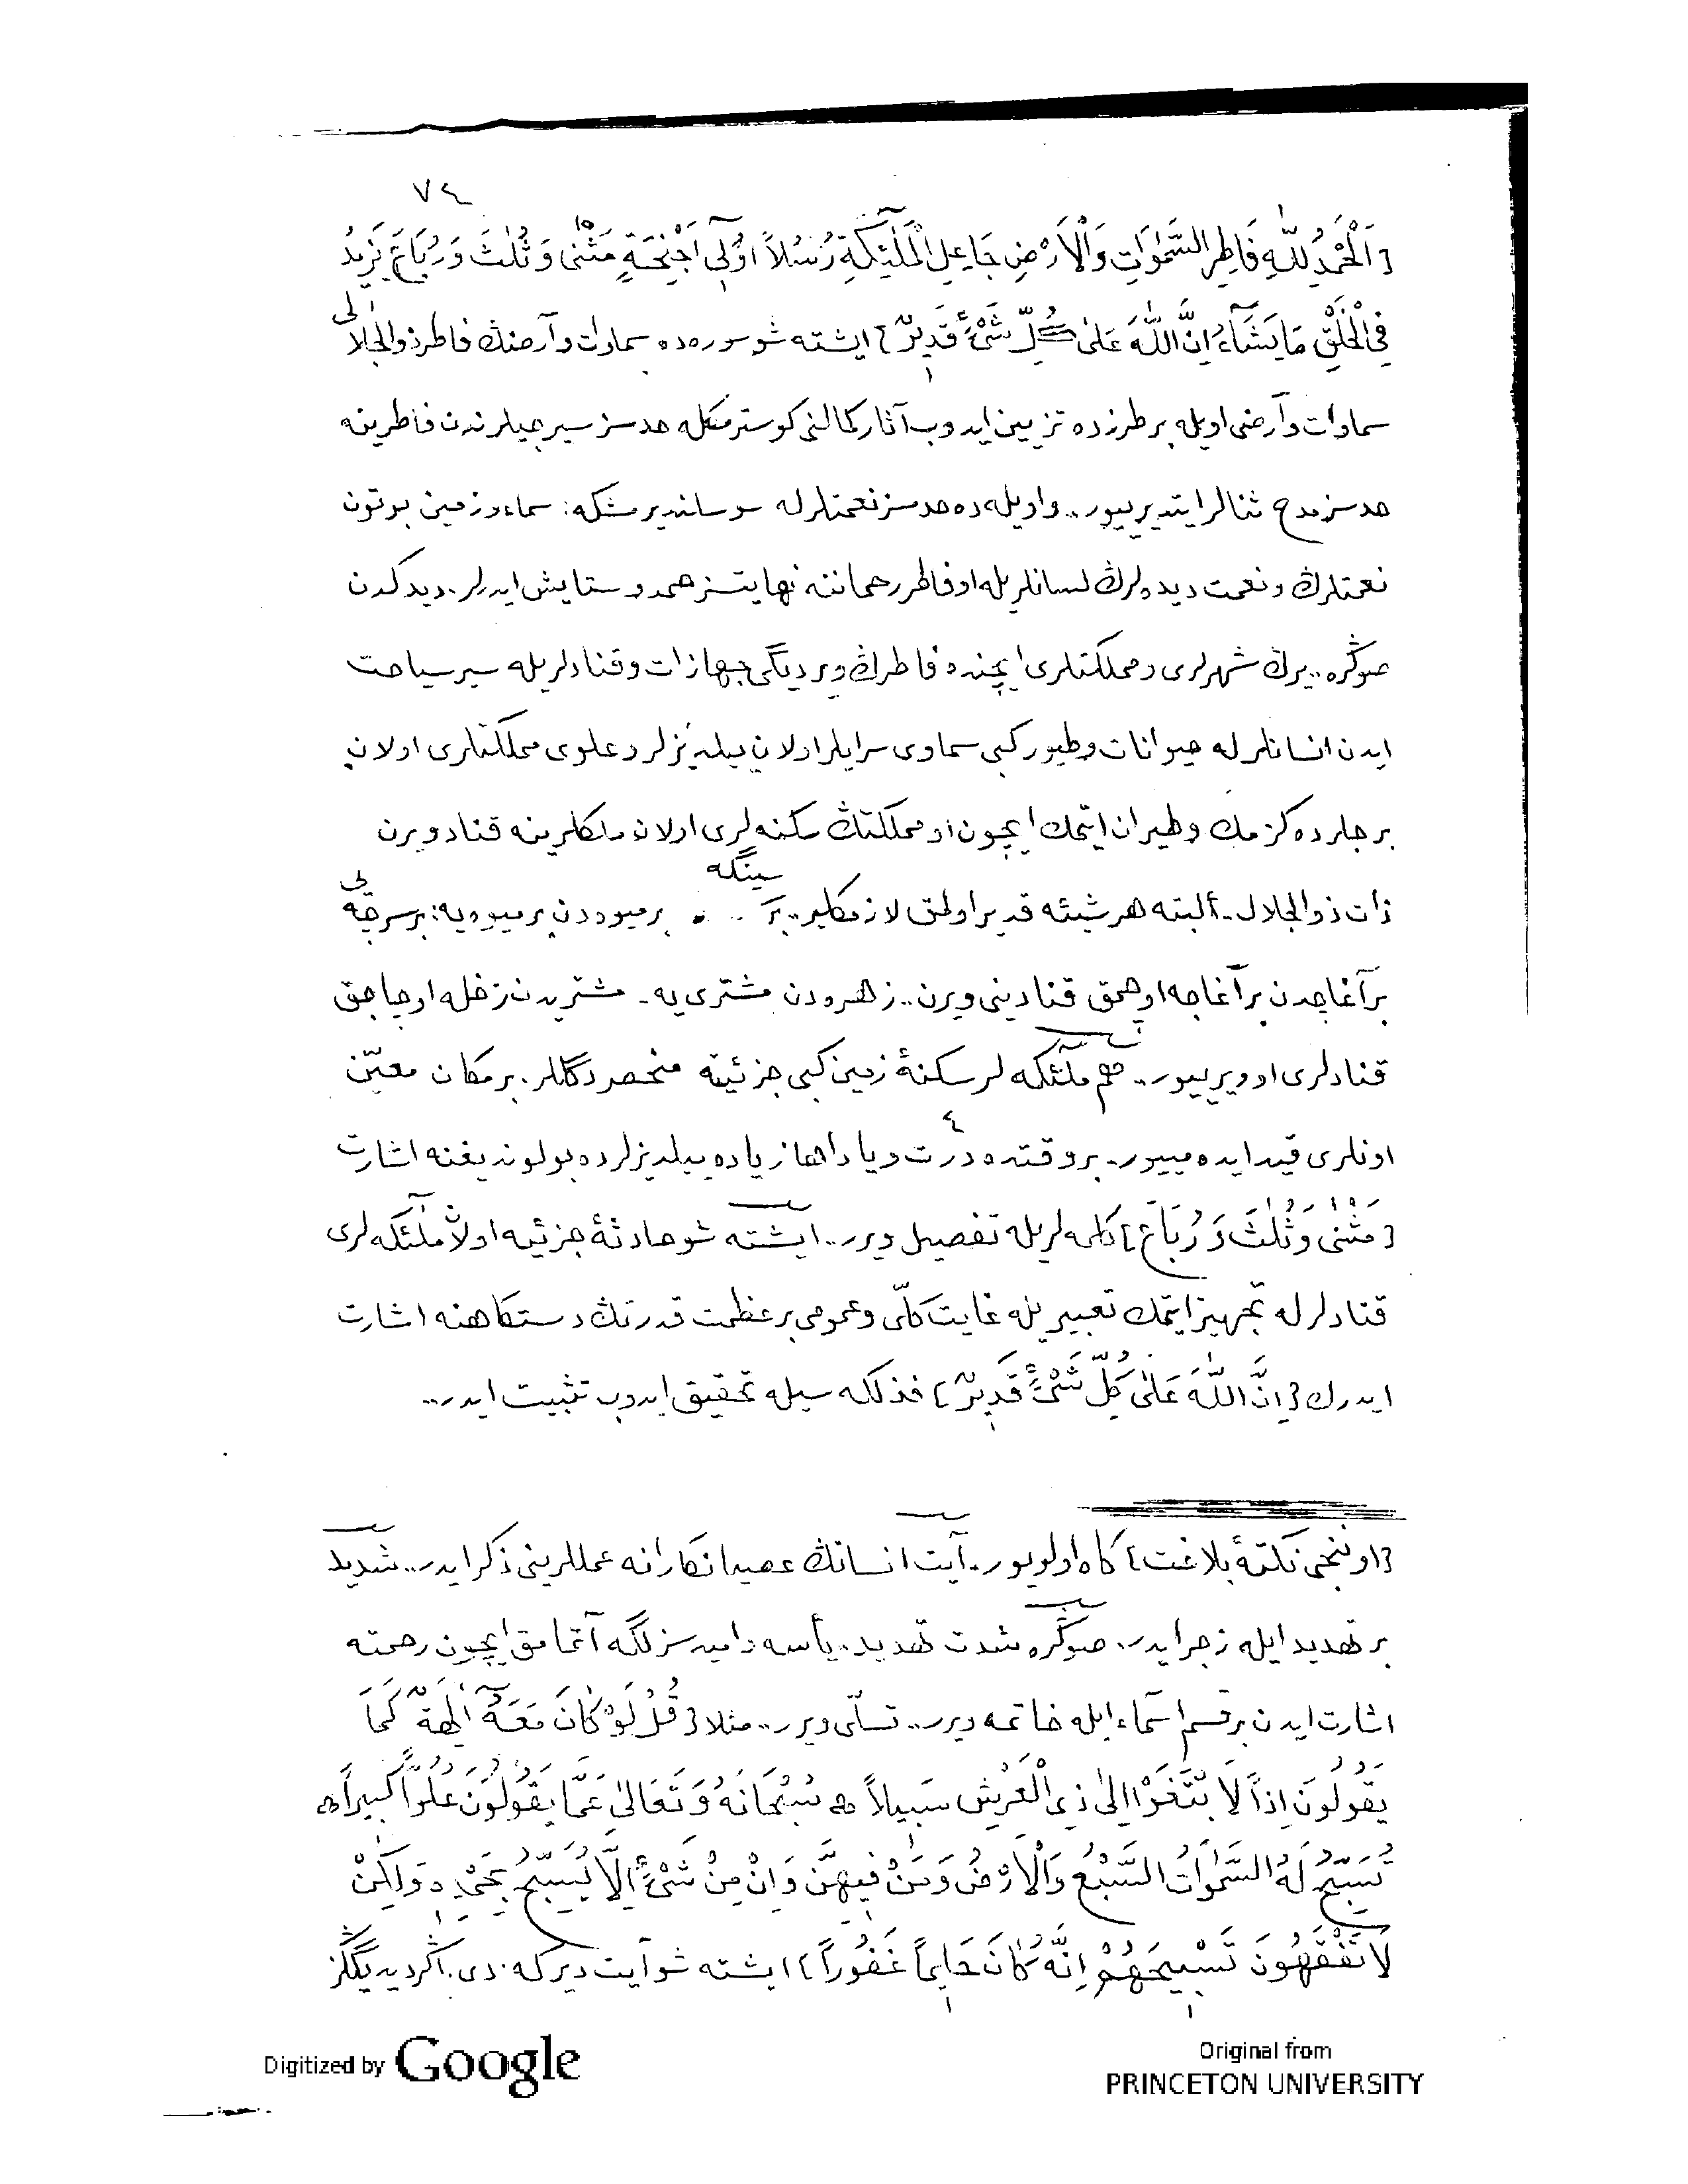 ٧٤
﴿اَلْحَمْدُ لِلّٰهِ فَاطِرِ السَّمٰوَاتِ وَالْاَرْضِ جَاعِلِ الْمَلٰٓئِكَةِ رُسُلاً اُولٓى اَجْنِحَةٍ مَثْنٰى وَثُلٰثَ وَرُبَاعَ يَزِيدُ
فِى الْخَلْقِ مَا يَشَٓاءُ اِنَّ اللّٰهَ عَلٰى كُلِّ شَىْءٍ قَدِيرٌ﴾ ايشته شو سوره‌ده سماوات وآرضڭ فاطر ذوالجلالى
سماوات وآرضى اويله بر طرزده تزيين ايدوب آثار كمالنى كوسترمكله حدسز سيرجيلرندن فاطرينه
حدسز مدح ثنالر ايتديرييور.. واويله‌ده حدسز نعمتلرله سوسلنديرمشكه: سماء وزمين بوتون
نعمتلرڭ ونعمت ديده‌لرڭ لسانلريله او فاطر رحماننه نهايتسز حمد وستايش ايدرلر. ديدكدن
صوڭره.. يرڭ شهرلرى ومملكتلرى ايچنده فاطرڭ ويرديگى جهازات وقنادلريله سير سياحت
ايدن انسانلرله حيوانات وطيور كبى سماوى سرايلر اولان ييلديزلر وعلوى مملكتلرى اولان
برجلرده كزمك وطيران ايتمك ايچون او مملكتڭ سكنه‌لرى اولان ملكلرينه قناد ويرن
ذات ذوالجلال. ألبته هر شيئه قدير اولمق لازمكلير.. بر سينگه بر ميوه‌دن بر ميوه‌يه: بر سرچه‌يى
بر آغاچدن بر آغاجه اوچمق قنادينى ويرن.. زهره‌دن مشترى‌يه. مشتريدن زحله اوچاجق
قنادلرى او ويرييور.. هم ملئكه‌لر سكنۀ زمين كبى جزئيته منحصر دگللر. بر مكان معيّن
اونلرى قيد ايده‌مييور. بر وقتده درت ٤ ويا داها زياده ييلديزلرده بولونديغنه اشارت
﴿مَثْنٰى وَثُلٰثَ وَرُبَاعَ﴾ كلمه‌لريله تفصيل ويرر.. ايشته شو حادثۀ جزئيه اولان ملئكه‌لرى
قنادلرله تجهيز ايتمك تعبيريله غايت كلّى وعمومى بر عظمت قدرتڭ دستكاهنه اشارت
ايدرك ﴿اِنَّ اللّٰهَ عَلٰى كُلِّ شَىْءٍ قَدِيرٌ﴾ فذلكه‌سيله تحقيق ايدوب تثبيت ايدر..
﴿اوننجى نكتۀ بلاغت﴾ كاه اولويور. آيت انسانڭ عصيانكارانه عمللرينى ذكر ايدر.. شديد
بر تهديد ايله زجر ايدر. صوڭره شدت تهديد. يأسه واميدسزلگه آتمامق ايچون رحمته
اشارت ايدن بر قسم اسماء ايله خاتمه ويرر.. تسلّى ويرر.. مثلا ﴿قُلْ لَوْ كَانَ مَعَهُٓ اٰلِهَةٌ كَمَا
يَقُولُونَ اِذاً لَابْتَغَوْا اِلٰى ذِى الْعَرْشِ سَبِيلاً ﴿﴾ سُبْحَانَهُ وَتَعَالٰى عَمَّا يَقُولُونَ عُلُوّاً كَبِيراً ﴿﴾
تُسَبِّحُ لَهُ السَّمٰوَاتُ السَّبْعُ وَالْاَرْضُ وَمَنْ فِيهِنَّ وَاِنْ مِنْ شَىْءٍ اِلَّا يُسَبِّحُ بِحَمْدِهِ وَلٰكِنْ
لَا تَفْقَهُونَ تَسْبِيحَهُمْ اِنَّهُ كَانَ حَلِيماً غَفُوراً﴾ ايشته شو آيت ديركه. دى. اگر ديديگڭز
Digitized by Google
Original from
PRINCETON UNIVERSITY